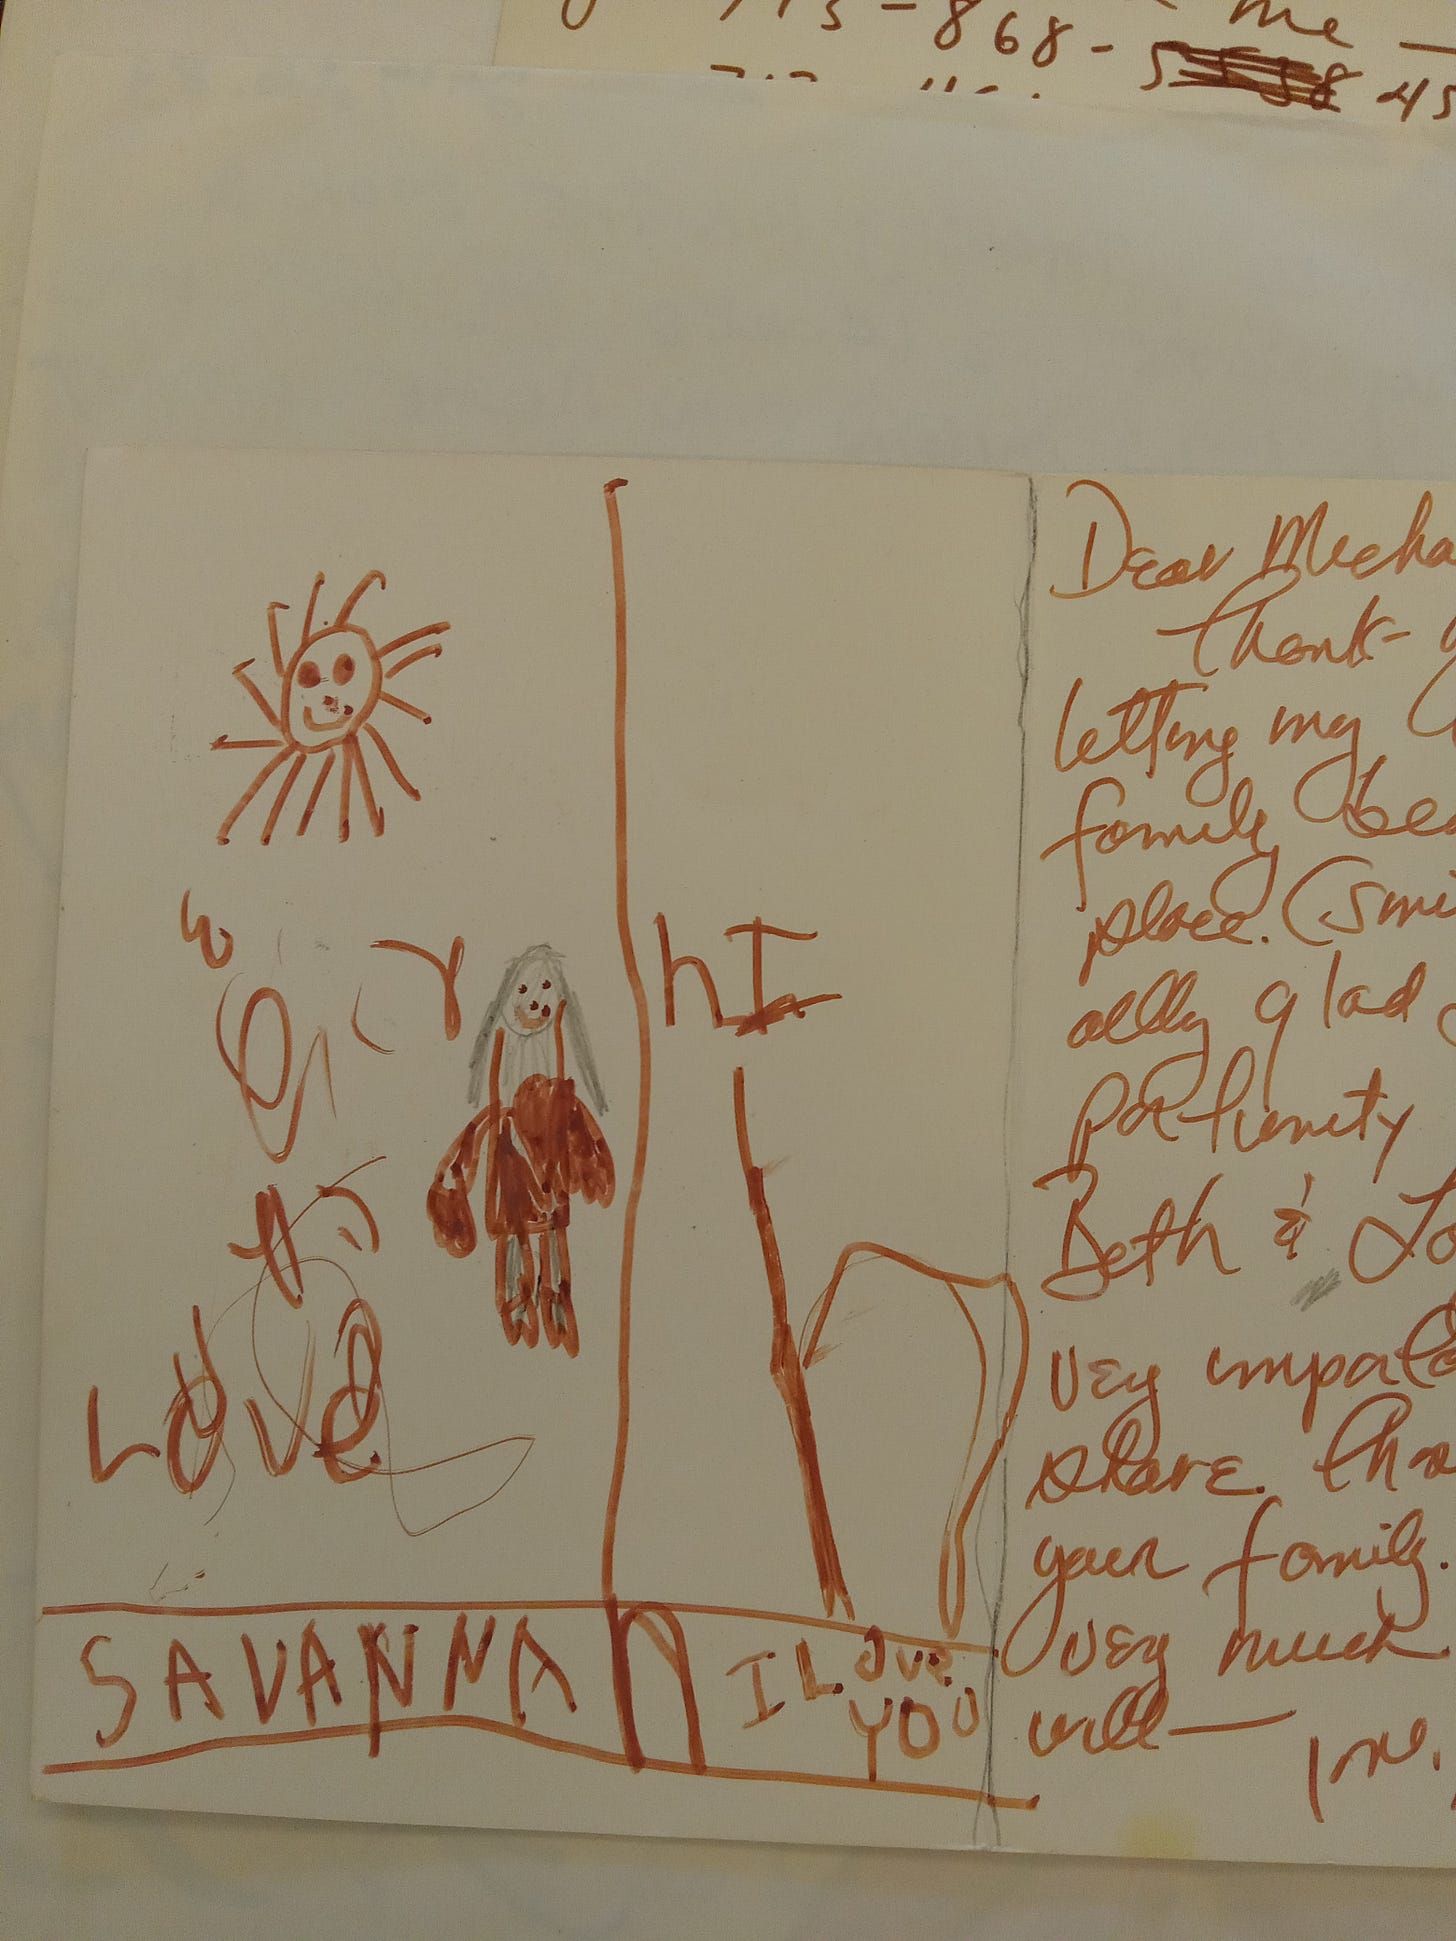 me —
713-868-5 45
hI
Love
SAVANNA
I Love
YOU
Dear Micha
Thank-
letting my
family be
place. (smi
ally glad
portunity
Beth & Lo
very impor
share. Tha
your family.
very much
will —